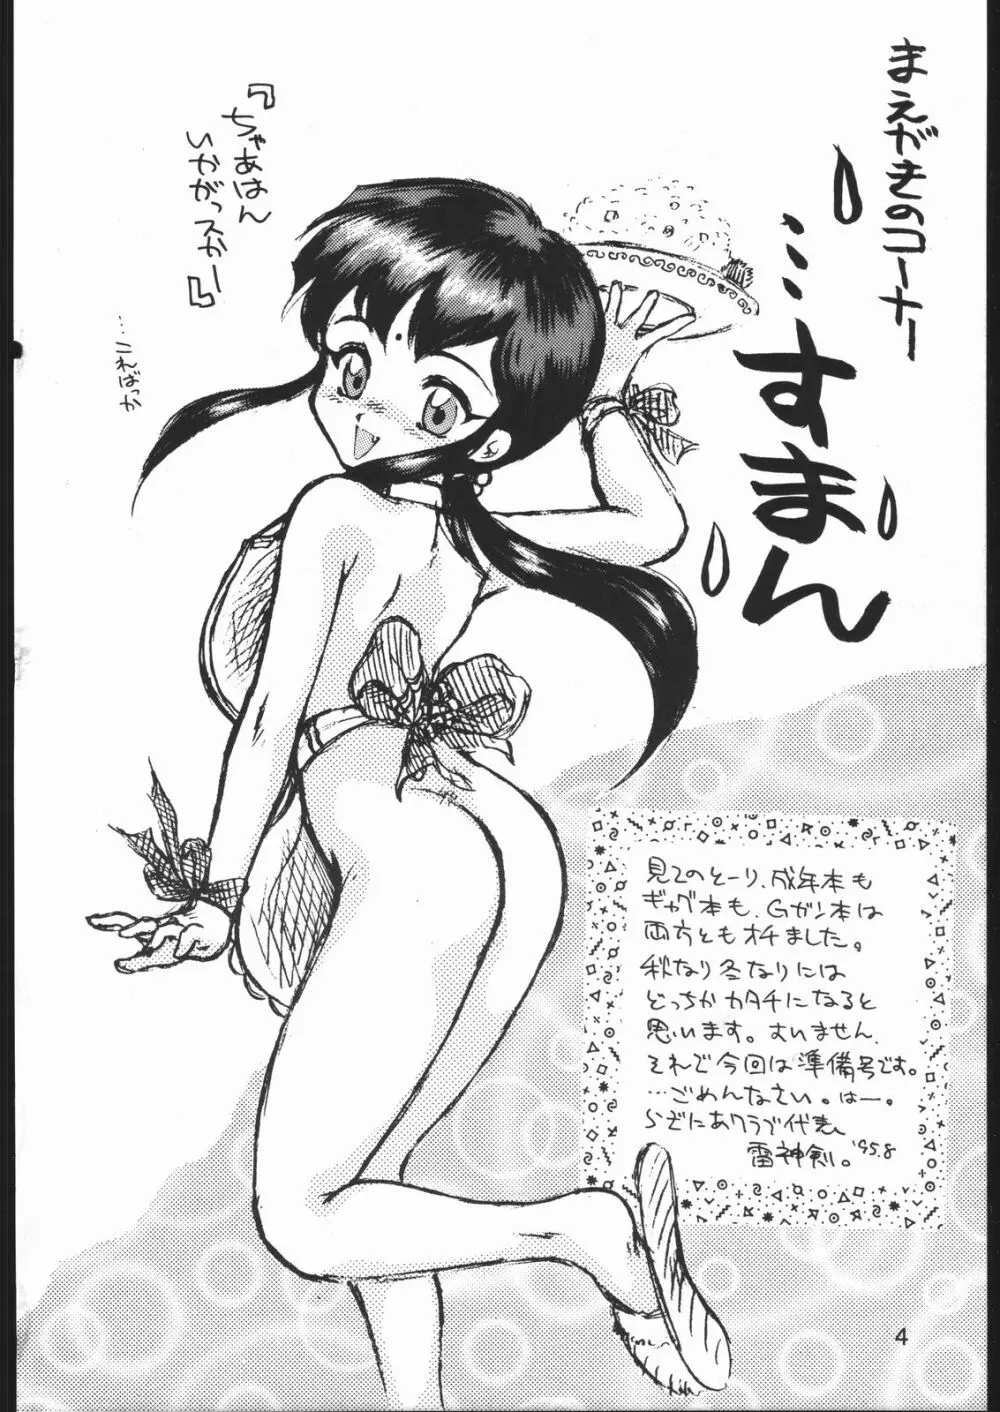 まえがきのコーナー
…すまん
『ちゃあはん
いかがっスか』
……こればっか
見てのとーり、成年本も
ギャグ本も、Gガン本は
両方ともオチました。
秋なり冬なりには
どっちか カタチになると
思います。すいません
それで今回は準備号です。
…ごめんなさい。はー。
らざにあクラブ代表
雷神剣。'95.8
4